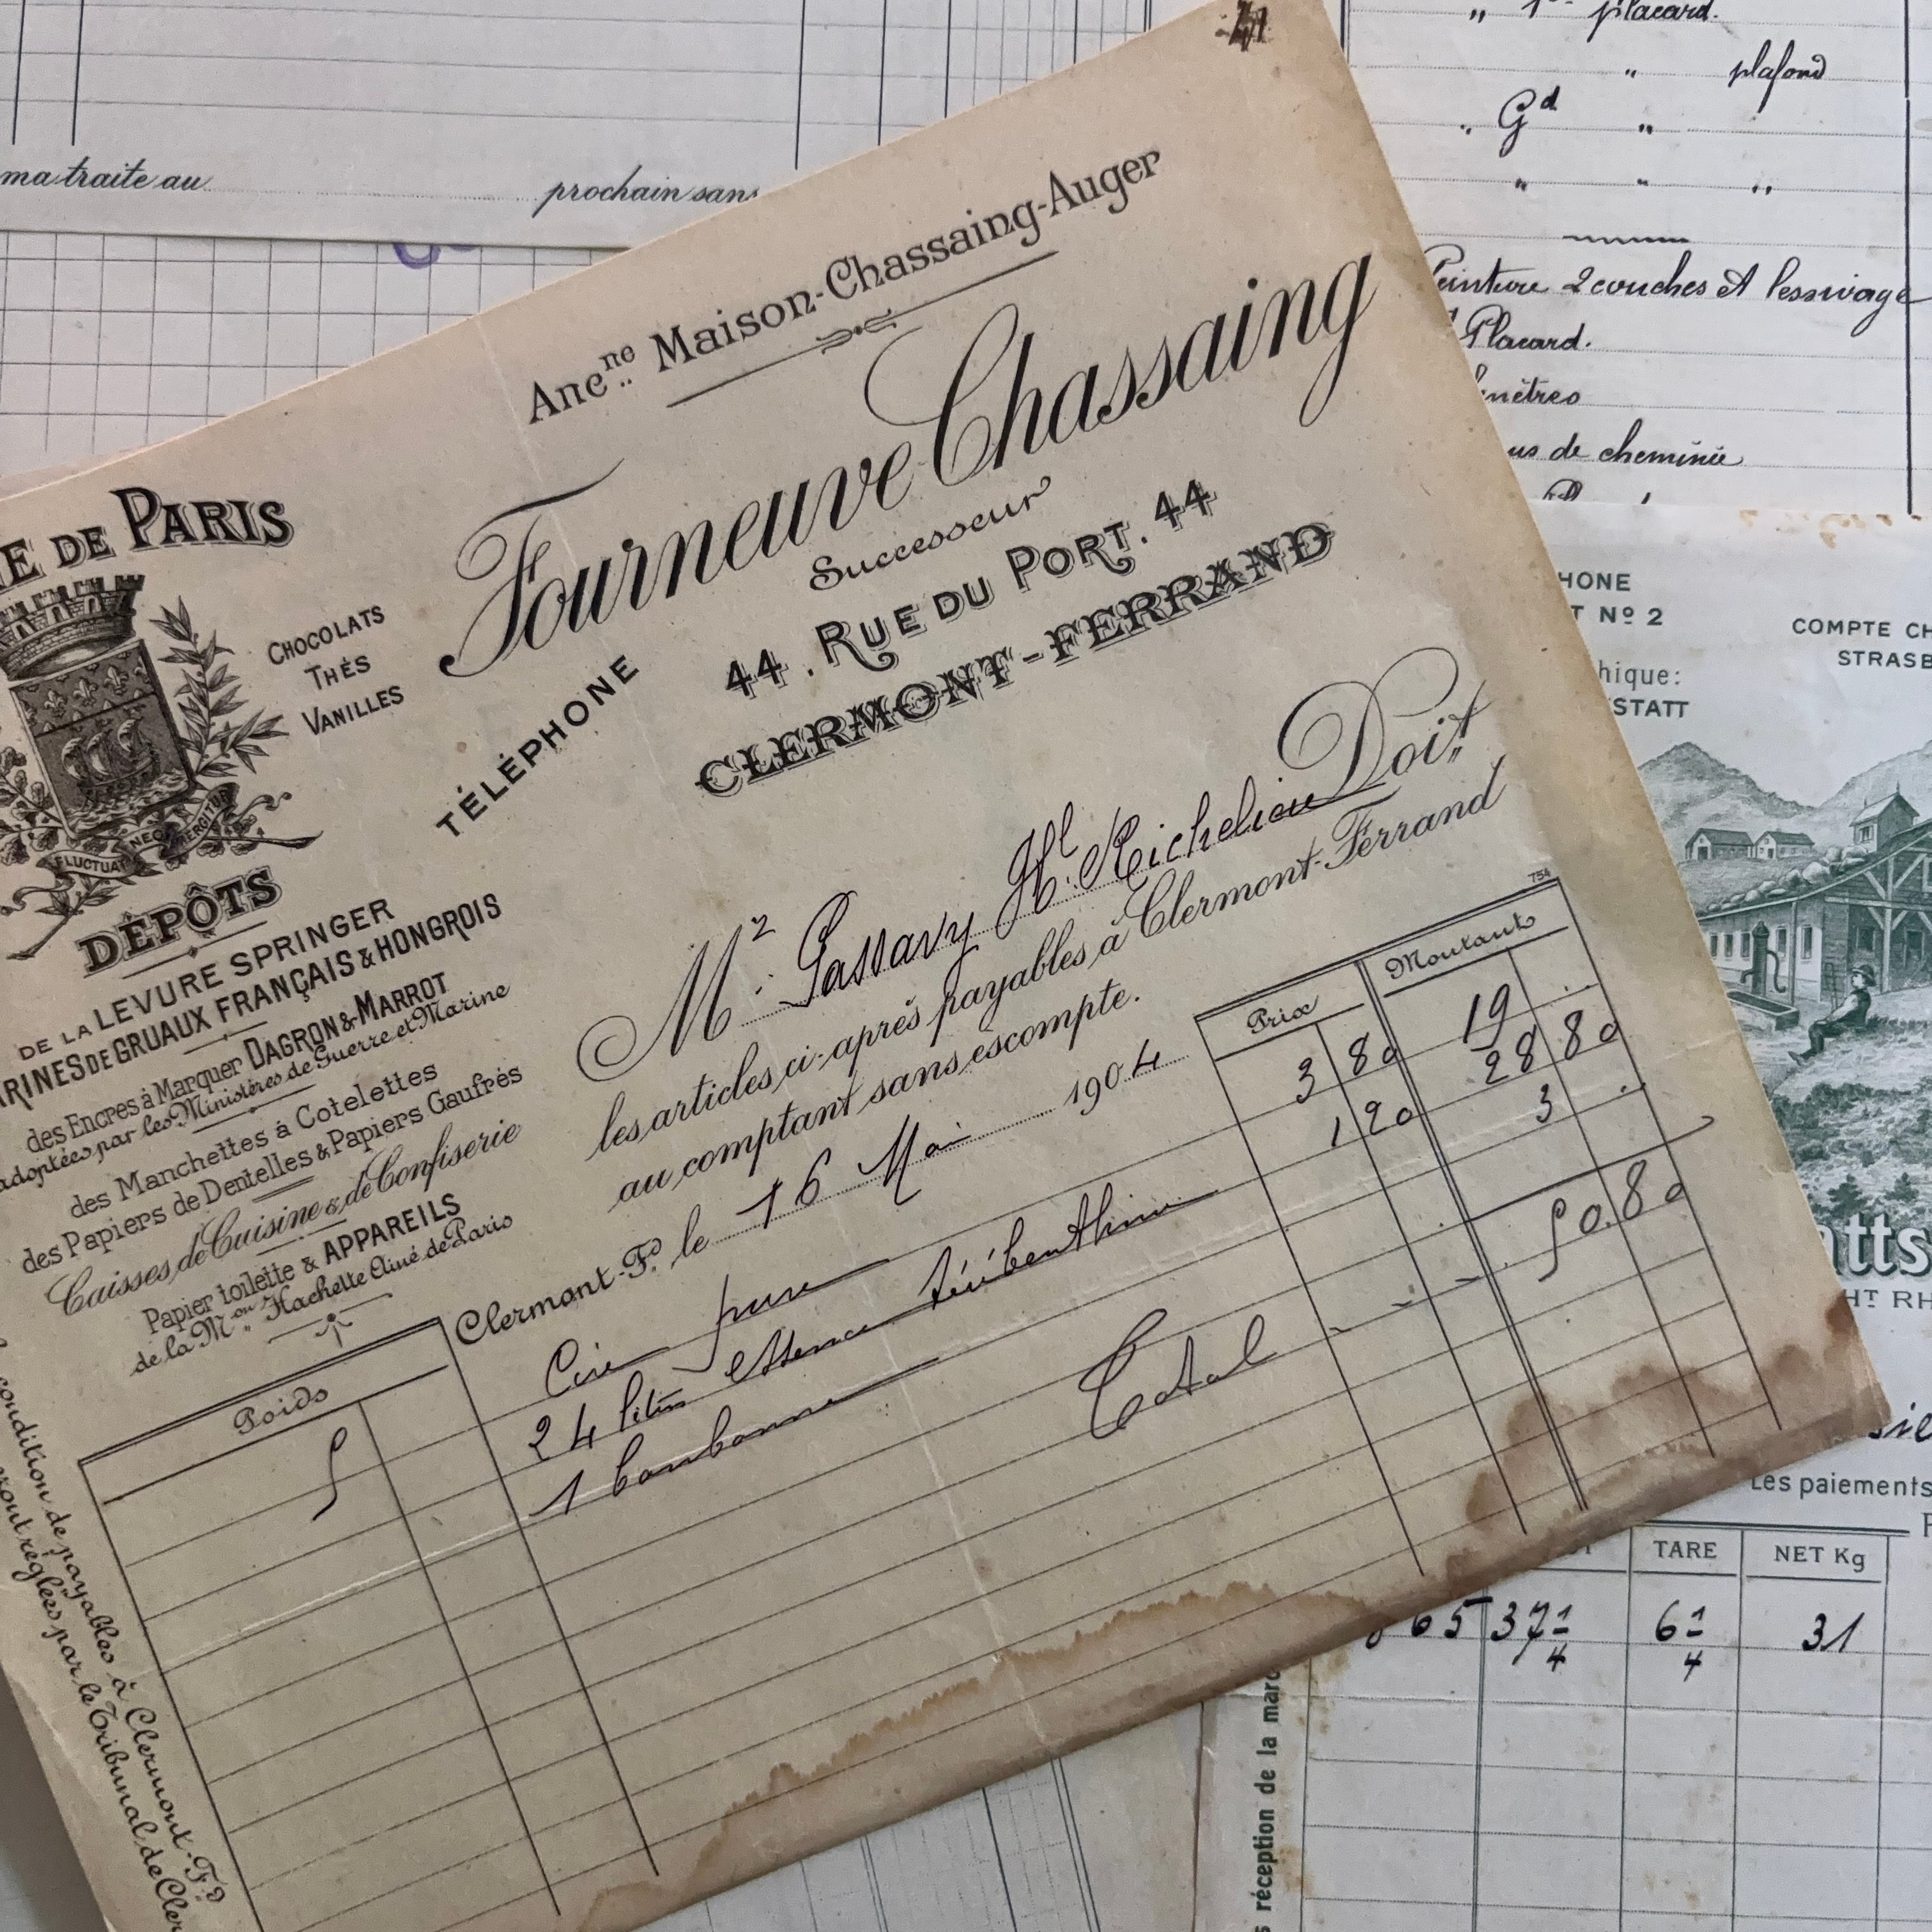 ma traite au prochain sans
" placard.
" plafond
" Gd "
" " "
Peinture 2 couches et lessivage
Placard.
de cheminée
Ancne Maison-Chassaing-Auger
Fourneuve Chassaing
Successeur
44. RUE DU PORT. 44
CLERMONT-FERRAND
TÉLÉPHONE
DE PARIS
CHOCOLATS
THÉS
VANILLES
FLUCTUAT NEC MERGITUR
DÉPÔTS
DE LA LEVURE SPRINGER
DE GRUAUX FRANÇAIS & HONGROIS
des Encres à Marquer DAGRON & MARROT
adoptées par les Ministères de Guerre et Marine
des Manchettes à Cotelettes
des Papiers de Dentelles & Papiers Gaufrés
Caisses de Cuisine & de Confiserie
Papier toilette & APPAREILS
de la Mon Hachette Aîné de Paris
Doit
Mr Passavy Hl. Richelieu
les articles ci-après payables à Clermont-Ferrand
au comptant sans escompte.
Clermont-Fd. le 16 Mai 1904
754
Poids Prix Montant
5 Cire pure 3 80 19 ..
24 litres essence térébenthine 1 20 28 80
1 bonbonne 3 ..
Total 50.80
condition de payables à Clermont-Fd
réglées par le Tribunal de Cler
HONE
T No 2
COMPTE CH
STRASB
hique:
STATT
HT RH
Les paiements
TARE NET Kg
65 37 1/4 6 1/4 31
réception de la marc